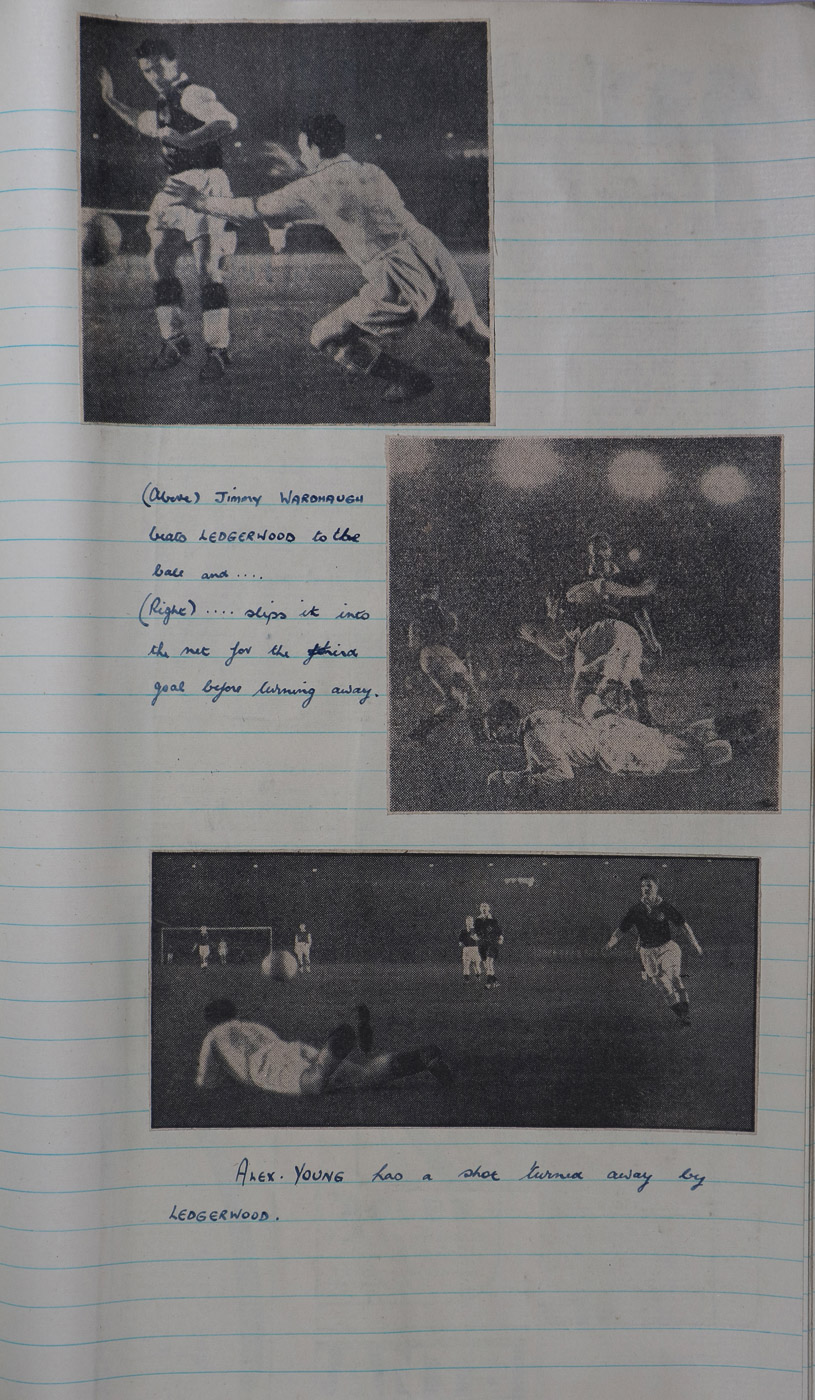 (Above) Jimmy WARDHAUGH
beats LEDGERWOOD to the
ball and ....
(Right) .... slips it into
the net for the third
goal before turning away.
ALEX. YOUNG has a shot turned away by
LEDGERWOOD.